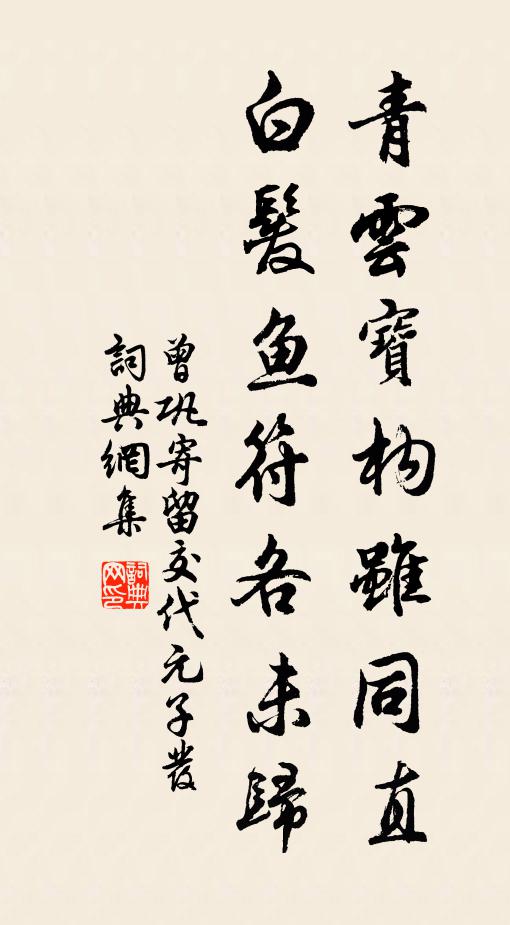 青雲寶构雖同直
白髮鱼符各未歸
曾巩寄留交代元子發
詞典網集
詞典网印